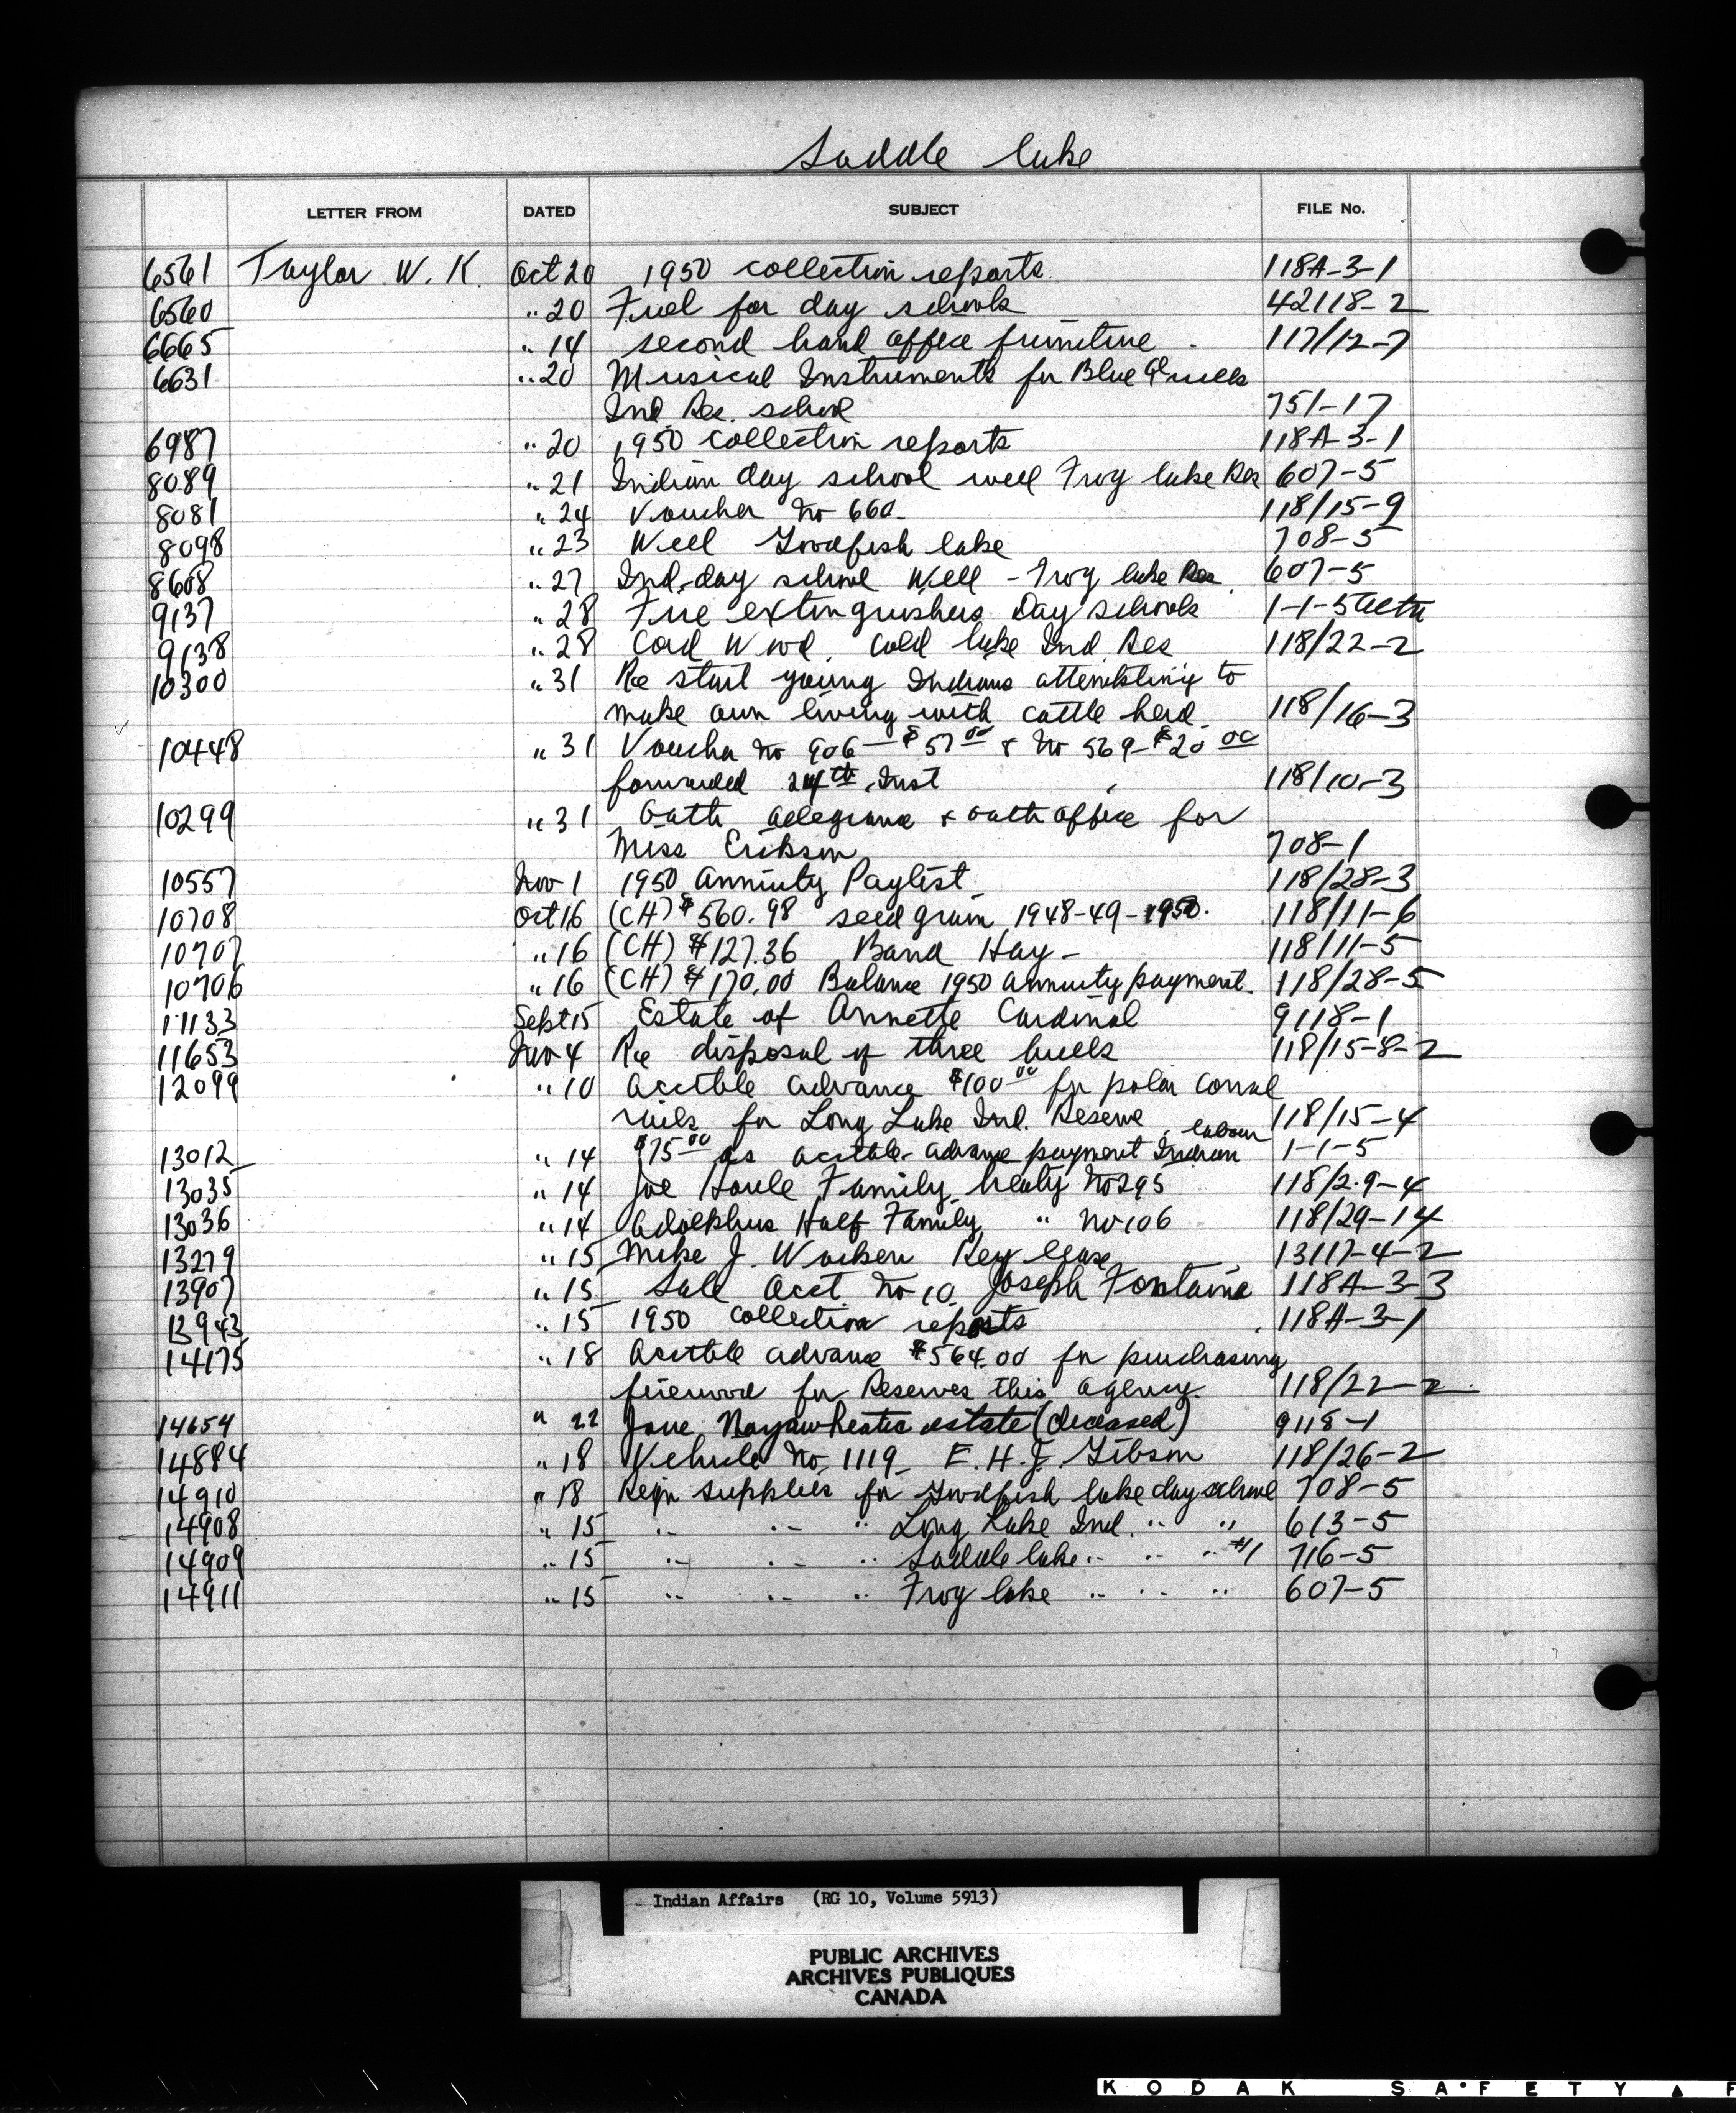 Saddle Lake
LETTER FROM DATED SUBJECT FILE No.
6561 Taylor W. K. Oct 20 1950 collection reports 118A-3-1
6560 " 20 Fuel for day schools 42118-2
6665 " 14 second hand office furniture 117/12-7
6631 " 20 Musical Instruments for Blue Quills
Ind Res. school 751-17
6987 " 20 1950 collection reports 118A-3-1
8089 " 21 Indian day school well Frog lake Res 607-5
8081 " 24 Voucher No 660 118/15-9
8098 " 23 Well Goodfish lake 708-5
8608 " 27 Ind-day school Well - Frog lake Res 607-5
9137 " 28 Fire extinguishers Day schools 1-1-5
9138 " 28 Cord Wood. Cold lake Ind Res 118/22-2
10300 " 31 Re start young Indians to
make own living with cattle herd. 118/16-3
10448 " 31 Voucher No 906 - $57.00 & No 569 - $20.00
forwarded 24th Inst 118/10-3
10299 " 31 Oath allegiance & oath office for
Miss Erikson 708-1
10557 Nov 1 1950 Annuity Paylist 118/28-3
10708 Oct 16 (CH) $560.98 seed grain 1948-49-1950. 118/11-6
10707 " 16 (CH) $127.36 Band Hay - 118/11-5
10706 " 16 (CH) $170.00 Balance 1950 annuity payment. 118/28-5
11133 Sept 15 Estate of Annette Cardinal 9118-1
11653 Nov 4 Re disposal of three bulls 118/15-8-2
12099 " 10 Acctble advance $100.00 for corral
rails for Long Lake Ind. Reserve 118/15-4
13012 " 14 $75.00 as acctble advance payment Indian labour 1-1-5
13035 " 14 Joe Houle Family treaty No 295 118/29-4
13036 " 14 Adolphus Half Family " No 106 118/29-14
13279 " 15 Mike J. lease 13117-4-2
13907 " 15 Sale Acct No 10 Joseph Fontaine 118A-3-3
13943 " 15 1950 collection reports 118A-3-1
14175 " 18 Acctble advance $564.00 for purchasing
firewood for Reserves this agency. 118/22-2
14654 " 22 Jane estate (deceased) 9118-1
14884 " 18 Vehicle No. 1119 E. H. J. Gibson 118/26-2
14910 " 18 Reqn supplies for Goodfish lake day school 708-5
14908 " 15 " " " Long Lake Ind. " " 613-5
14909 " 15 " " " Saddle lake " " " #1 716-5
14911 " 15 " " " Frog lake " " " 607-5
Indian Affairs (RG 10, Volume 5913)
PUBLIC ARCHIVES
ARCHIVES PUBLIQUES
CANADA
KODAK SAFETY F